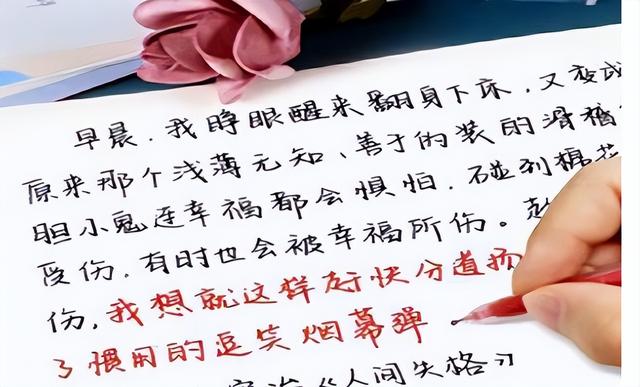 早晨.我睁眼醒来翻身下床,又变成
原来那个浅薄无知、善于的装的滑稽
胆小鬼连幸福都会惧怕.碰到棉花
受伤,有时也会被幸福所伤。趁
伤,我想就这样赶快分道扬
了惯用的逗笑烟幕弹
《人间失格》